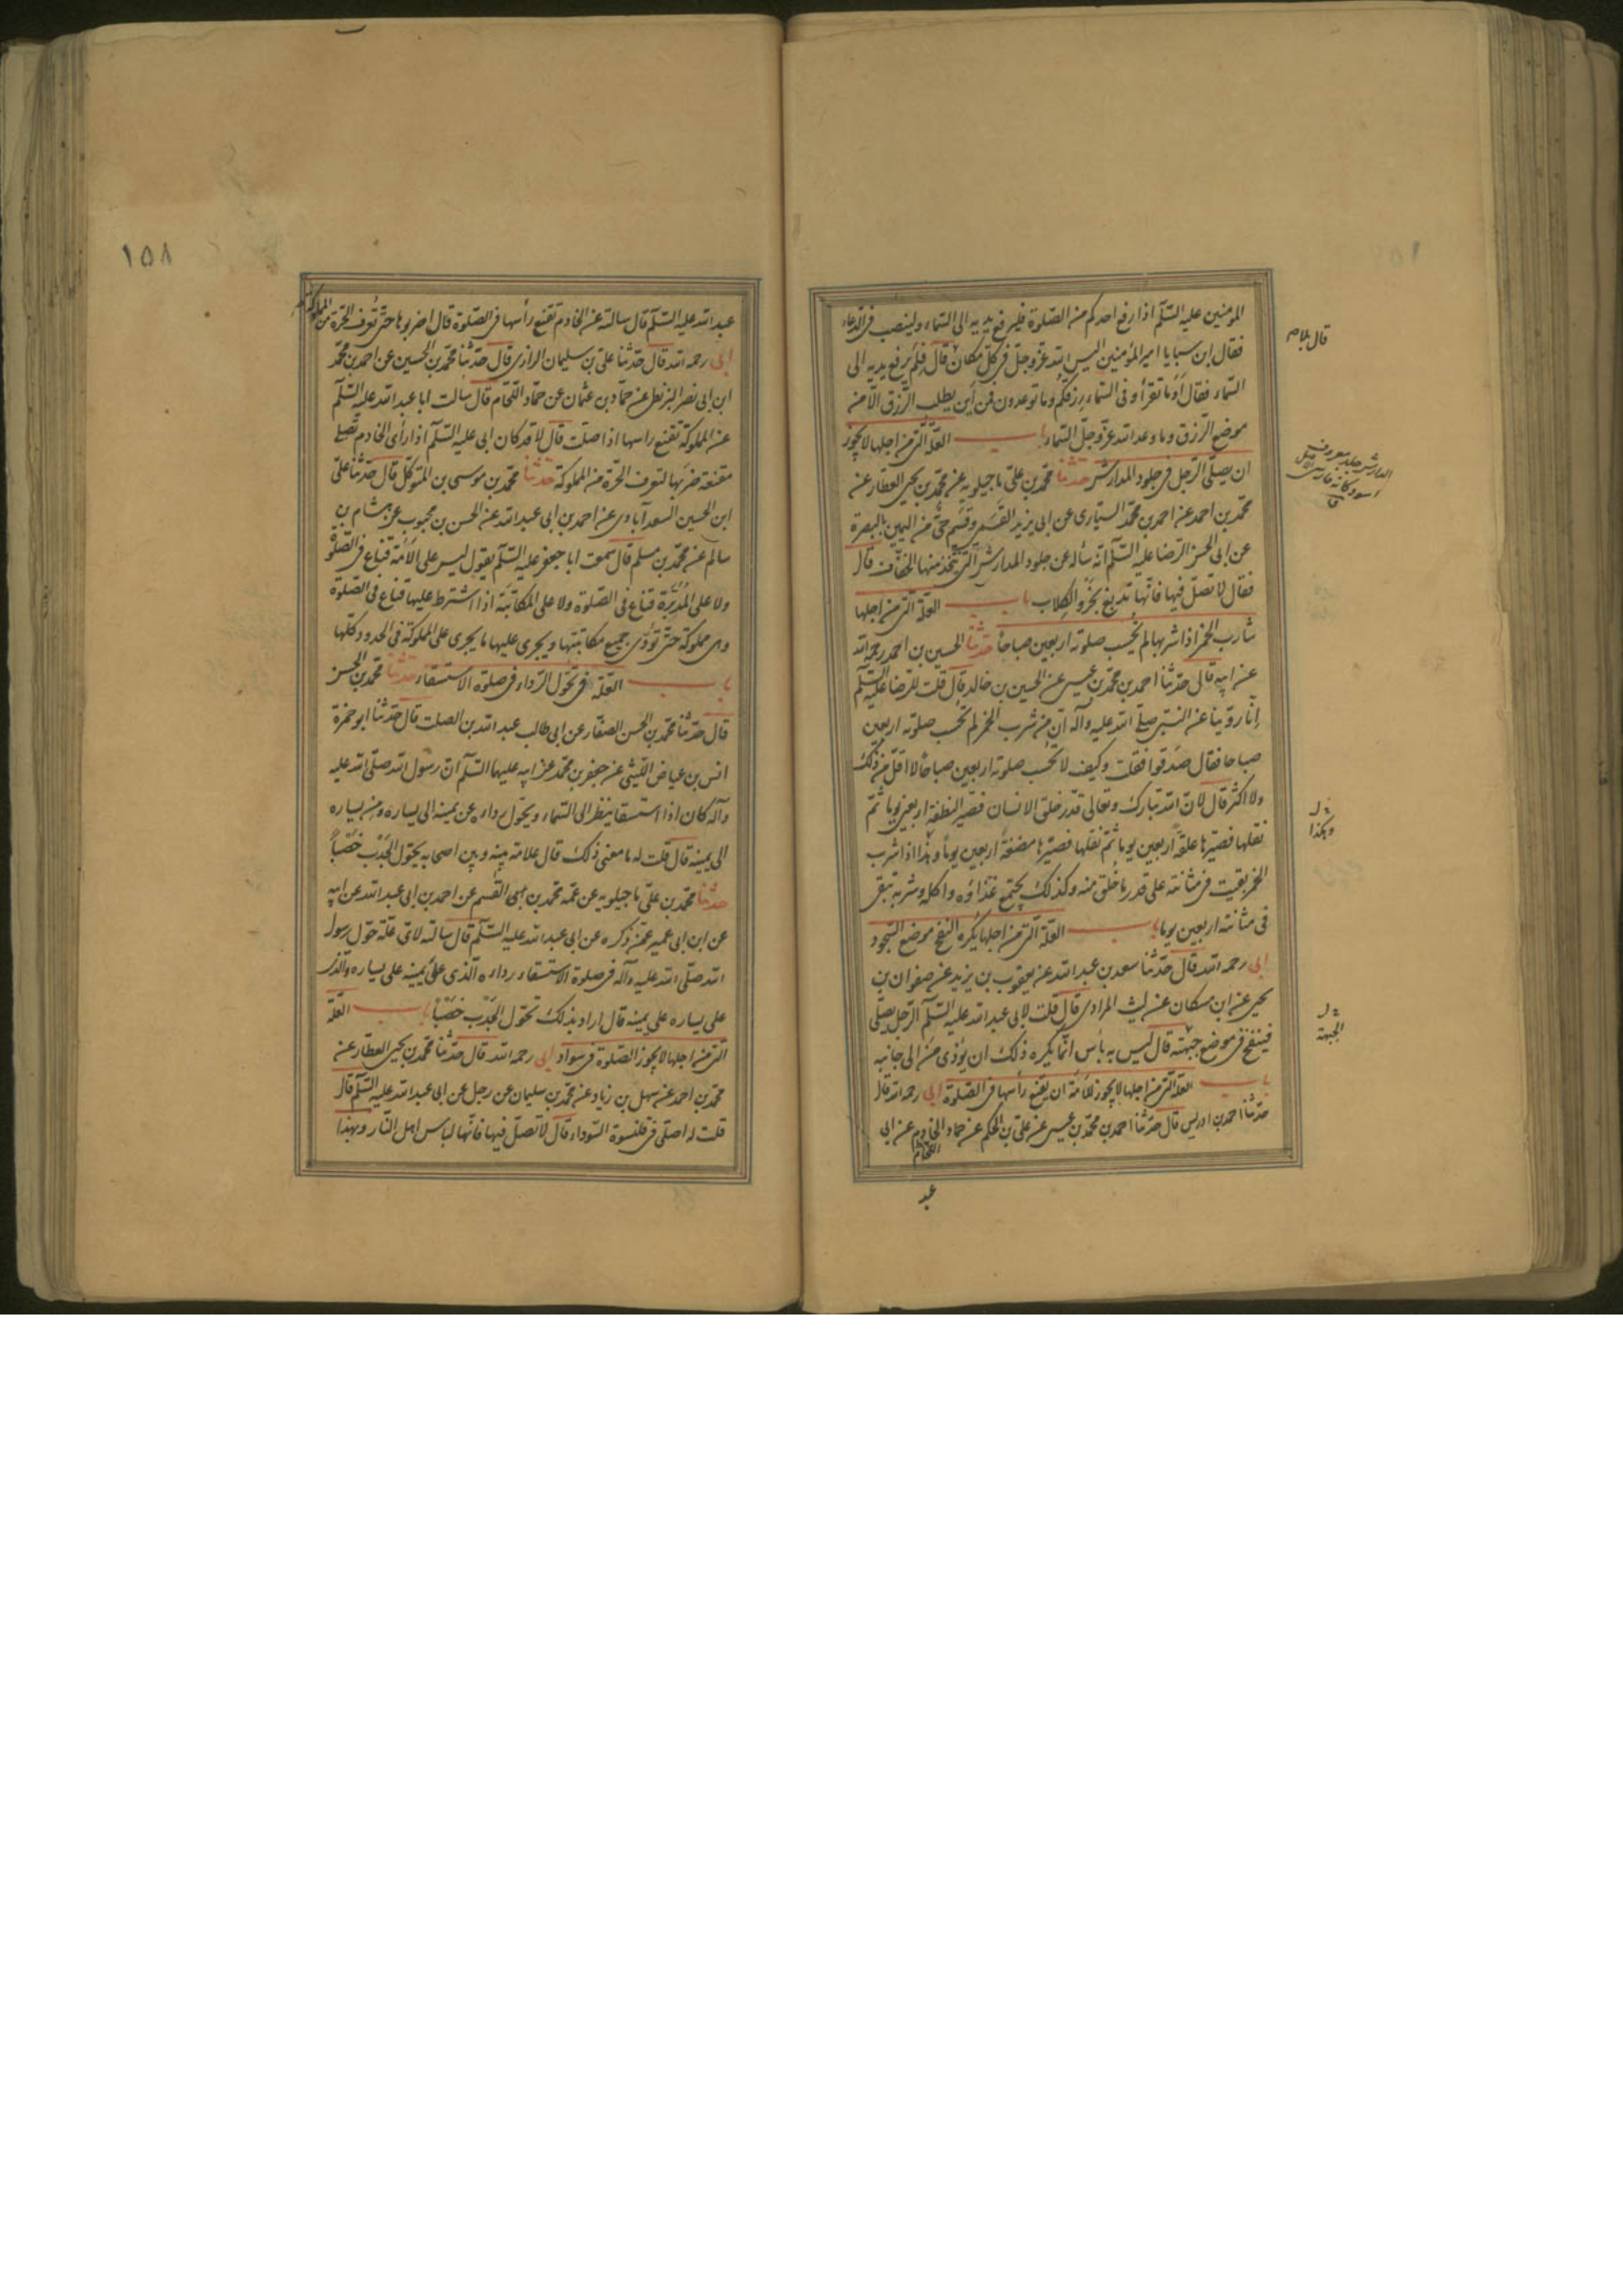 المؤمنين عليه السّلم اذا رفع احدكم من الصّلوة فليرفع يديه الى السّماء ولينصب فى الدعاء
فقال ابن سبا يا امير المؤمنين اليس الله عزّ وجلّ فى كلّ مكان قال فلم يرفع يديه الى
السّماء فقال أوما تقرأ وفى السّماء رزقكم وما توعدون فمن أين يطلب الرّزق الّا من
موضع الرّزق وما وعد الله عزّ وجلّ السّماء باب العلّة الّتى من اجلها لا يجوز
ان يصلّى الرّجل فى جلود المدارش حدثنا محمّد بن علىّ ماجيلويه عن محمّد بن يحيى العطار عن
محمّد بن احمد عن احمد بن محمّد السّيارى عن ابى يزيد القسمى وقسم حىّ من اليمن بالبصرة
عن ابى الحسن الرّضا عليه السّلم انّه سأله عن جلود المدارش الّتى يتّخذ منها الخفاف قال
فقال لا تصلّ فيها فانّها تدبغ بخرو الكلاب باب العلّة الّتى من اجلها
شارب الخمر اذا شربها لم يحسب صلوته اربعين صباحا حدثنا الحسين بن احمد رحمه الله
عن ابيه قال حدّثنا احمد بن محمّد بن عيسى عن الحسين بن خالد قال قلت للرّضا عليه السّلم
انّا روّينا عن النّبى صلّى الله عليه وآله انّ من شرب الخمر لم تحسب صلوته اربعين
صباحا فقال صدقوا فقلت وكيف لا تحسب صلوته اربعين صباحا لا اقلّ من ذلك
ولا اكثر قال لانّ الله تبارك وتعالى قدّر خلق الانسان فصيّر النطفة اربعين يوما ثمّ
نقلها فصيّرها علقة اربعين يوما ثمّ نقلها فصيّرها مضغة اربعين يوما وهذا اذا شرب
الخمر بقيت فى مثانته على قدر ما خلق منه وكذلك يجتمع غذاؤه واكله وشربه تبقى
فى مثانته اربعين يوما باب العلّة الّتى من اجلها يكره النفخ موضع السّجود
ابى رحمه الله قال حدّثنا سعد بن عبد الله عن يعقوب بن يزيد عن صفوان بن
يحيى عن ابن مسكان عن ليث المرادى قال قلت لابى عبد الله عليه السّلم الرّجل يصلّى
فينفخ فى موضع جبهته قال ليس به بأس انّما يكره ذلك ان يؤذى من الى جانبه
باب العلّة الّتى من اجلها لا يجوز للامة ان تقنع رأسها فى الصّلوة ابى رحمه الله قال
حدّثنا احمد بن ادريس قال حدّثنا احمد بن محمّد بن عيسى عن علىّ بن الحكم عن حماد الخادم عن ابى
اللحّام
عبد
قال بلام
الدارش جلد معروف
اسود كانه فارسى الاصل
ق
خ ل
وهكذا
خ ل
الجبهة
١٥٨
عبد الله عليه السّلم قال سالته عن الخادم تقنع رأسها فى الصّلوة قال اضربوها حتّى تُعرف الحرّة من المملوكة
ابى رحمه الله قال حدّثنا علىّ بن سليمان الرازى قال حدّثنا محمّد بن الحسين عن احمد بن محمّد
ابن ابى نصر البزنطى عن حمّاد بن عثمان عن حمّاد اللّحام قال سالت ابا عبد الله عليه السّلم
عن المملوكة تقنع راسها اذا صلّت قال لا قد كان ابى عليه السّلم اذا رأى الخادم تصلّى
مقنعة ضربها لتعرف الحرّة من المملوكة حدثنا محمّد بن موسى بن المتوكّل قال حدّثنا علىّ
ابن الحسين السعد آبادى عن احمد بن ابى عبد الله عن الحسن بن محبوب عن هشام بن
سالم عن محمّد بن مسلم قال سمعت ابا جعفر عليه السّلم يقول ليس على الأمة قناع فى الصّلوة
ولا على المدبّرة قناع فى الصّلوة ولا على المكاتبة اذا اشترط عليها قناع فى الصّلوة
وهى مملوكة حتّى تؤدّى جميع مكاتبتها ويجرى عليها ما يجرى على المملوكة فى الحدود كلّها
باب العلّة فى تحوّل الرّداء فى صلوة الاستسقاء حدثنا محمّد بن الحسن
قال حدّثنا محمّد بن الحسن الصفّار عن ابى طالب عبد الله بن الصلت قال حدّثنا ابو حمزة
انس بن عياض اللّيثى عن جعفر بن محمّد عن ابيه عليهما السّلم انّ رسول الله صلّى الله عليه
وآله كان اذا استسقا ينظر الى السّماء ويحوّل رداءه عن يمينه الى يساره ومن يساره
الى يمينه قال قلت له ما معنى ذلك قال علامة بينه وبين اصحابه يحوّل الجَدْب خصْباً
حدثنا محمّد بن علىّ ماجيلويه عن عمّه محمّد بن ابى القسم عن احمد بن ابى عبد الله عن ابيه
عن ابن ابى عمير عمّن ذكره عن ابى عبد الله عليه السّلم قال سالته لاىّ علّة حوّل رسول
الله صلّى الله عليه وآله فى صلوة الاستسقاء رداءه الّذى على يمينه على يساره والّذى
على يساره على يمينه قال اراد بذلك تحوّل الجَدْب خصْبا باب العلّة
الّتى من اجلها لا يجوز الصّلوة فى سواد ابى رحمه الله قال حدّثنا محمّد بن يحيى العطار عن
محمّد بن احمد عن سهل بن زياد عن محمّد بن سليمان عن رجل عن ابى عبد الله عليه السّلم قال
قلت له اصلّى فى قلنسوة السّوداء قال لا تصلّ فيها فانّها لباس اهل النّار وبهذا